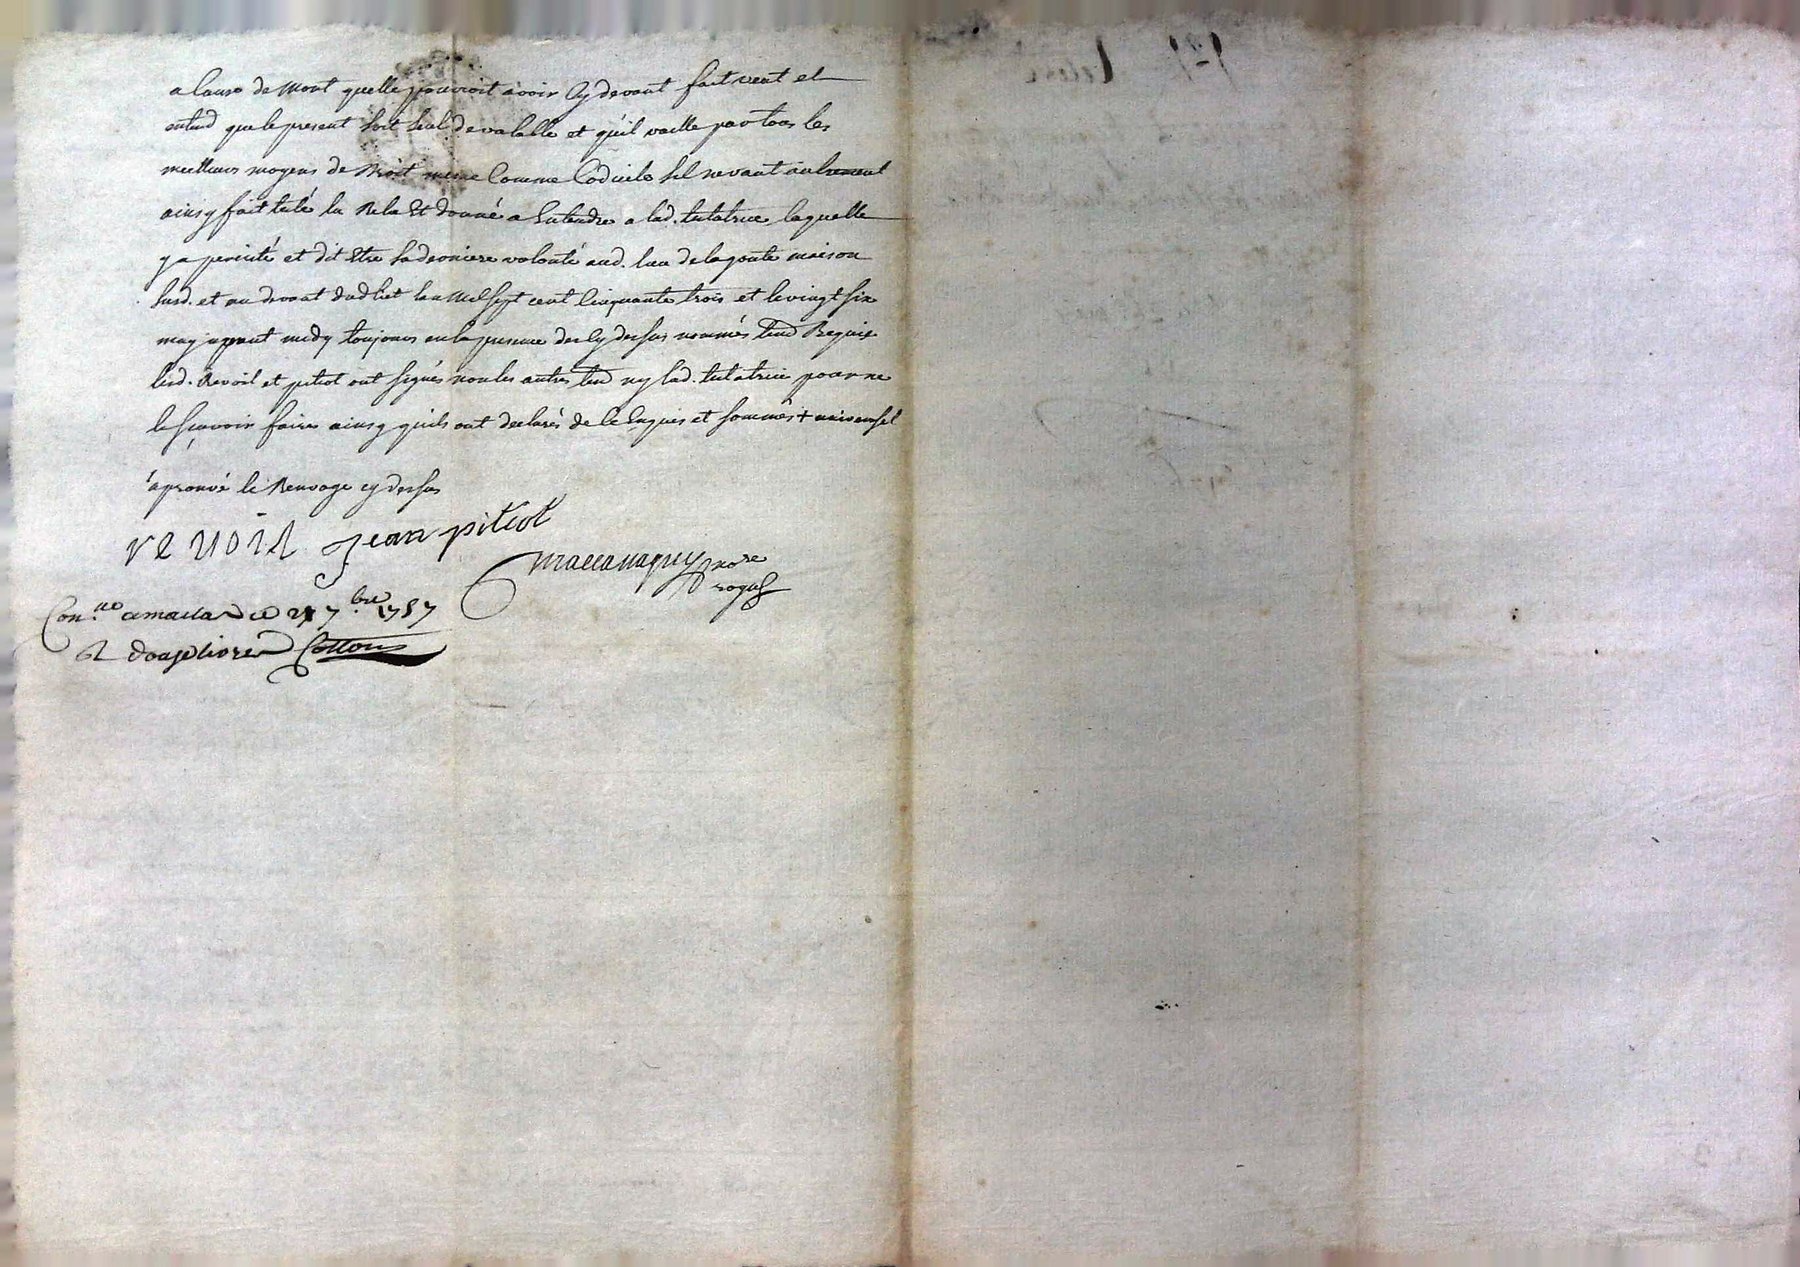 a cause de mort quelle pourroit avoir cy devant fait veut et
entend que le present soit seul de valable et qu'il vaille par tous les
meilleurs moyens de droit meme comme codicile sil ne vaut autrement
ainsy fait leu Rela et donné a Entendre a lad. testatrice laquelle
y a percisté et dit Etre sa derniere volonté aud. lieu de lagoute maison
susd. et au devant dud lict lan mil sept cent cinquante trois et le vingt six
may apraut midy toujours en la presence des cy dessus nommés tem̄ Requis
lesd. Revoil et pitiot ont signés non les autres tem̄ ny lad. testatrice pour ne
le sçavoir faire ainsy quils ont declarés de ce Enquis et sommés + universel
aprouvé le Renvoye cy dessus
revoil jean pitiot
no.re
rogus
Con.lle ce 7.bre 1757
R douze livres Cotton